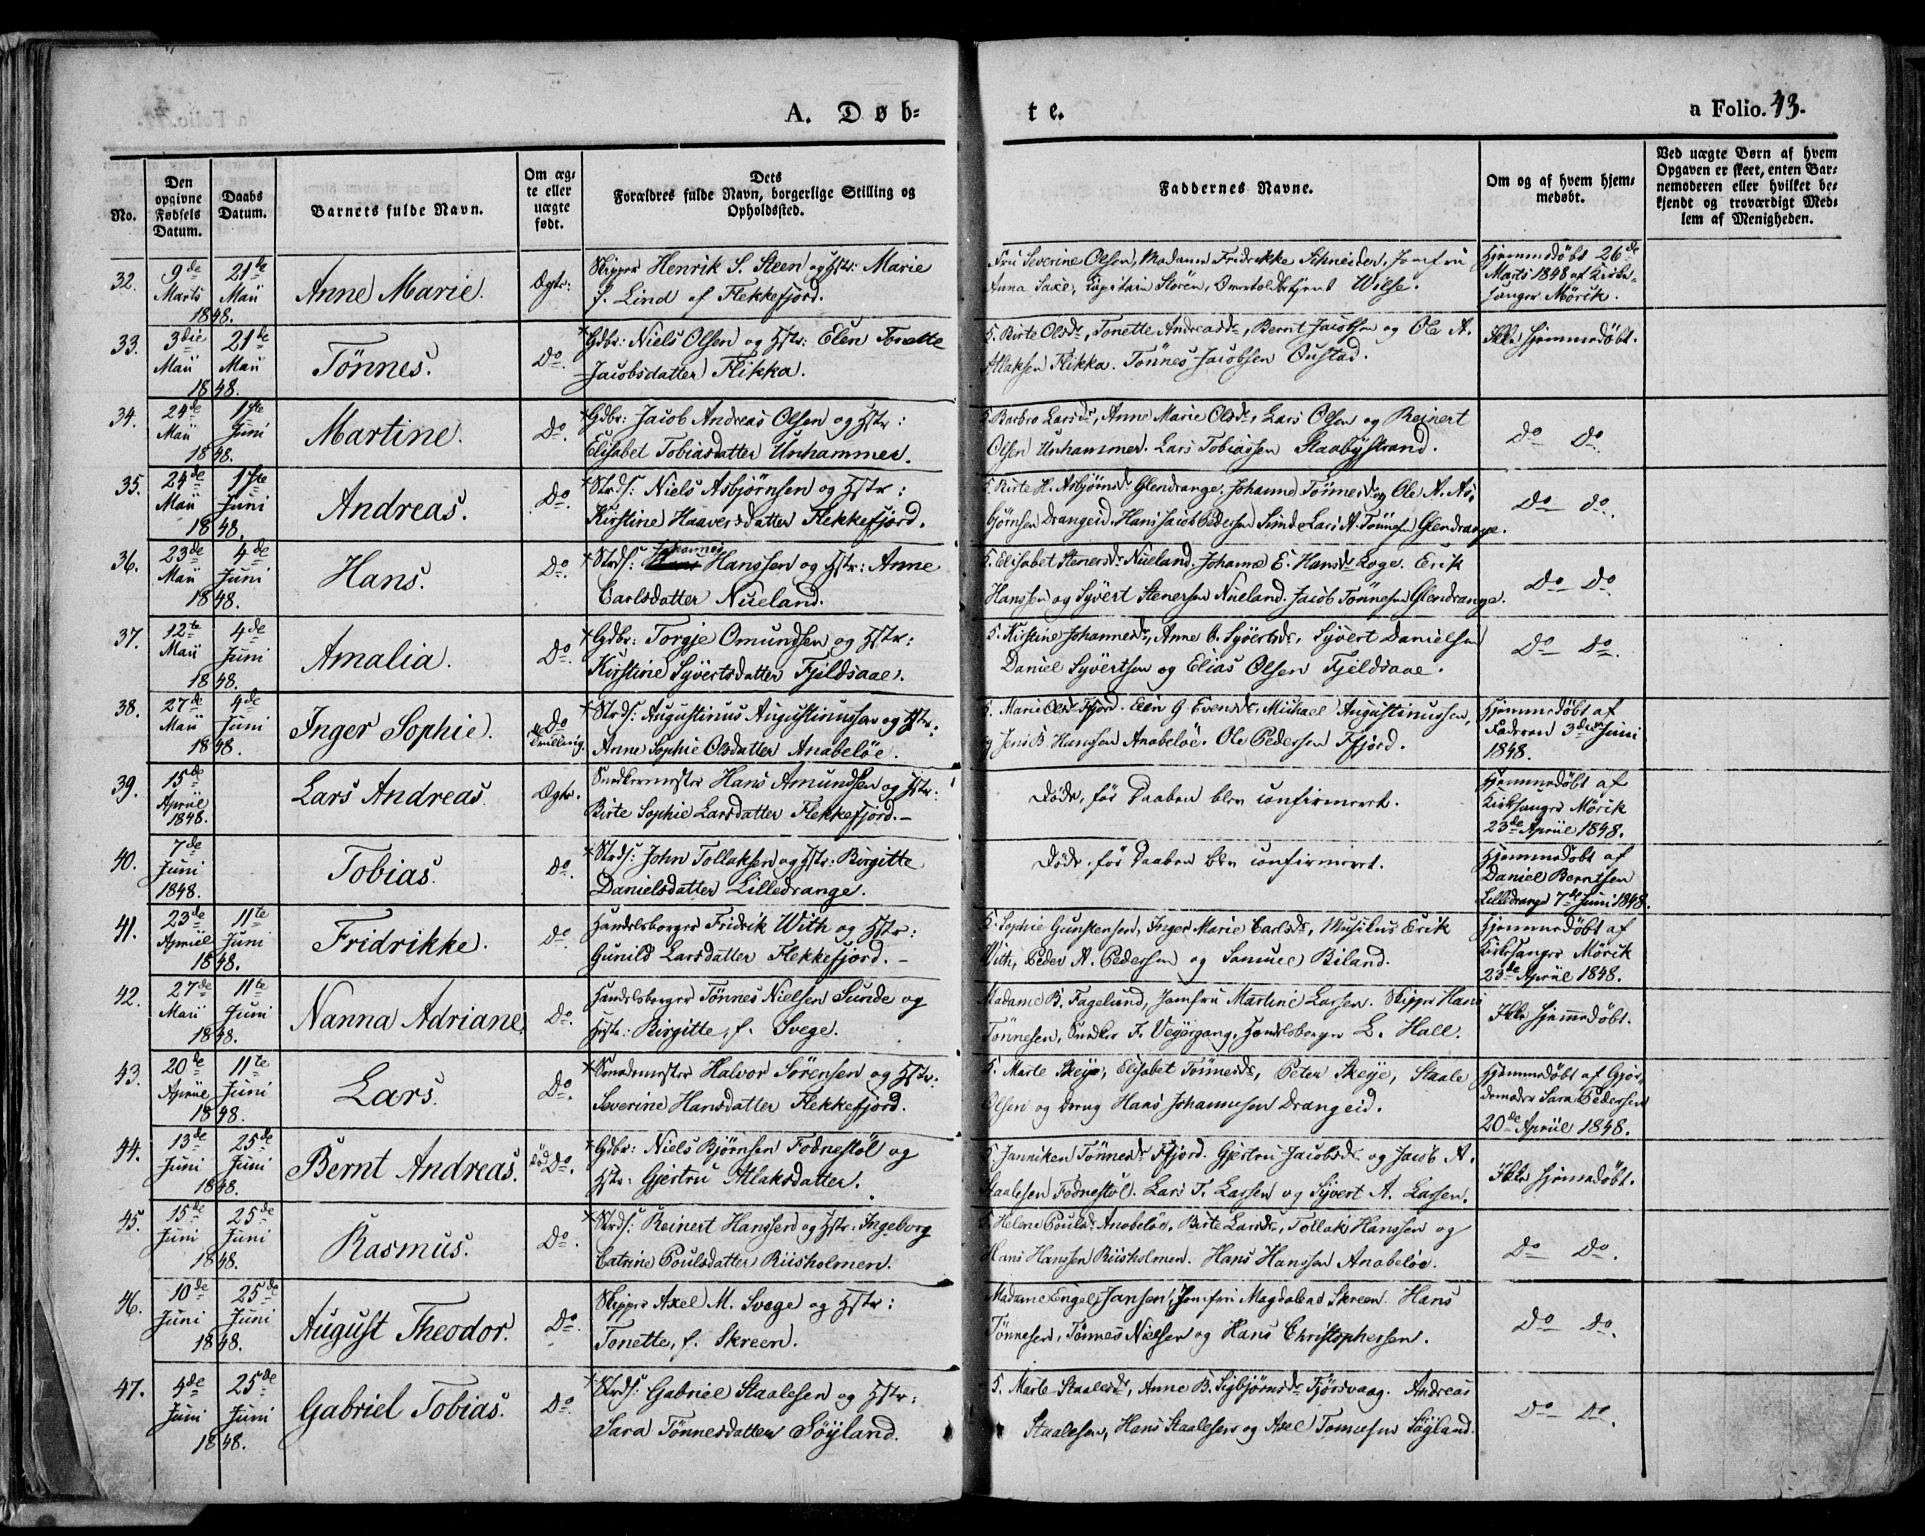 A. Døb-
te.
a Folio. 43.
No.
Den opgivne Fødsels Datum.
Daabs Datum.
Barnets fulde Navn.
Om ægte eller uægte født.
Dets Forældres fulde Navn, borgerlige Stilling og Opholdssted.
Faddernes Navne.
Om og af hvem hjemmedøbt.
Ved uægte Børn af hvem Opgaven er skeet, enten Barnemoderen eller hvilket bekjendt og troværdigt Medlem af Menigheden.
32.
9de Marts 1848.
21de Maii
Anne Marie.
Ægte:
Skipper Henrik S. Steen og Hstr: Marie
f. Lind af Flekkefjord.
Fru Severine Olsen, Madame Fridrikke Schneider, Jomfru
Anna Saxe, Capitain Stören, Wilse.
Hjemmedøbt 26de
Marts 1848 af Kirke-
sanger Mörik.
33.
3die Maii 1848.
21de Maii
Tönnes.
Do.
Gdbr: Niels Olsen og Hstr: Elen Tonette
Jacobsdatter Flikka.
Birte Olsdr, Tonette Andreasdr, Bernt Jacobsen og Ole A.
Atlaksen Flikka. Tönnes Jacobsen Oustad.
Ikke hjemmedøbt.
34.
24de Maii 1848.
1ste Juni
Martine.
Do.
Gdbr: Jacob Andreas Olsen og Hstr:
Elisabet Tobiasdatter Unhammer.
Barbro Larsdr, Anne Marie Olsdr, Lars Olsen og Reinert
Olsen Unhammer. Lars Tobiassen Stadbystrand.
Do Do.
35.
24de Maii 1848.
1ste Juni
Andreas.
Do.
Strds: Niels Asbjørnsen og Hstr:
Kirstine Haaversdatter Flekkefjord.
Birte H. Asbjørnsd. Glendrange. Johanne Tönnesd. og Ole A. As-
bjørnsen Drangeid. Hans Jacob Pedersen Sunde Lars A. Tönnesen Glendrange.
Do do.
36.
23de Maii 1848.
4de Juni
Hans.
Do.
Strds: Johannes Hanssen og Hstr: Anne
Carlsdatter Nueland.
Elisabet Stenersdr Nueland. Johanne E. Hansdr Loge. Erik
Hanssen og Syvert Stenersen Nueland. Jacob Tönnesen Glendrange.
Do Do.
37.
12te Maii 1848.
4de Juni
Amalia.
Do.
Gdbr: Torgje Omundsen og Hstr:
Kirstine Syvertsdatter Fjeldsaae.
Kirstine Johannesdr, Anne C. Syvertsdr, Syvert Danielsen
Daniel Syvertsen og Elias Olsen Fjeldsaae.
Do Do.
38.
27de Maii 1848.
4de Juni
Inger Sophie.
Do
Strds: Augustinus Augustinussen og Hstr:
Anne Sophie Olsdatter Anabeløe.
Marie Olsd. Ffjord. Elen G Evensdr, Michael Augustinussen,
og Jens B. Hanssen Anabeløe. Ole Pedersen Ffjord.
Hjemmedøbt af
Faderen 3die Juni
1848.
39.
15de Apriil 1848.
Lars Andreas.
Ægte.
Snedkermester Hans Amundsen og Hstr:
Birte Sophie Larsdatter Flekkefjord.
Døde, før Daaben blev confirmeret.
Hjemmedøbt af
Kirkesanger Mörik
23de Apriil 1848.
40.
7de Juni 1848.
Tobias.
Do.
Strds: John Tollaksen og Hstr: Birgitte
Danielsdatter Lilledrange.
Døde, før Daaben blev confirmeret.
Hjemmedøbt af
Daniel Berntsen
Lilledrange 7de Juni 1848.
41.
23de Apriil 1848.
11te Juni
Fridrikke.
Do.
Handelsborger Fridrik With og Hstr:
Gunild Larsdatter Flekkefjord.
Sophie Gundersen, Inger Marie Carlsdr, Musikus Erik
With, Peder A. Pedersen og Samuel Biland.
Hjemmedøbt af
Kirkesanger Mörik
23de Apriil 1848.
42.
27de Maii 1848.
11te Juni
Nanna Adriane.
Do.
Handelsborger Tönnes Nielsen Sunde og
Hstr: Birgitte, f. Svege.
Madame B. Fagelund, Jomfru Martine Larsen. Skipper Hans
Tönnesen, Snedker F. Vejergang, Handelsborger L. Hall.
Ikke hjemmedøbt.
43.
20de Apriil 1848.
11te Juni
Lars.
Do.
Smedemester Halvor Sörensen og Hstr:
Severine Hansdatter Flekkefjord.
Marte Skeye, Elisabet Tönnesdr, Peter Skeye, Staale
Olsen og Hans Johannesen Drangeid.
Hjemmedøbt af Gjor-
demoder Sara Pedersen
20de Apriil 1848.
44.
13de Juni 1848.
25de Juni
Bernt Andreas.
Do.
Gdbr: Niels Bjørnsen Fodnestöl og
Hstr: Gjertru Atlaksdatter.
Janniken Tönnesdr Ffjord. Gjertru Jacobsdr og Jacob A.
Staalesen Fodnestöl. Lars T. Larsen og Syvert A. Larsen.
Ikke hjemmedøbt.
45.
15de Juni 1848.
25de Juni
Rasmus.
Do.
Strds: Reinert Hanssen og Hstr: Ingeborg
Catrine Poulsdatter Riisholmen.
Helene Poulsd. Anabeløe, Birte Larsdr, Tollak Hanssen og
Hans Hanssen Riisholmen. Hans Hanssen Anabeløe.
Do Do.
46.
10de Juni 1848.
25de Juni
August Theodor.
Do.
Skipper Axel M. Svege og Hstr:
Tonette, f. Skreen.
Madame Engel Jansen, Jomfru Magdalena Skreen. Hans
Tönnesen, Tönnes Nielsen og Hans Christophersen.
Do Do.
47.
4de Juni 1848.
25de Juni
Gabriel Tobias.
Do.
Strds: Gabriel Staalesen og Hstr:
Sara Tönnesdatter Söyland.
Marte Staalesdr, Anne B. Sigbjørnsdr Fjørsvaag. Andreas
Staalesen, Hans Staalesen og Axel Tönnesen Söyland.
Do Do.